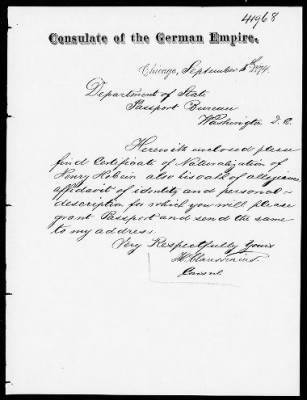 41968
Consulate of the German Empire.
Chicago, September 5th 1874.
Department of State
Passport Bureau
Washington D. C.
Herewith enclosed please
find Certificate of Naturalization of
Henry also his oath of allegiance
affidavit of identity and personal-
description for which you will please
grant Passport and send the same
to my address.
Very Respectfully Yours
H. Claussenius.
Consul